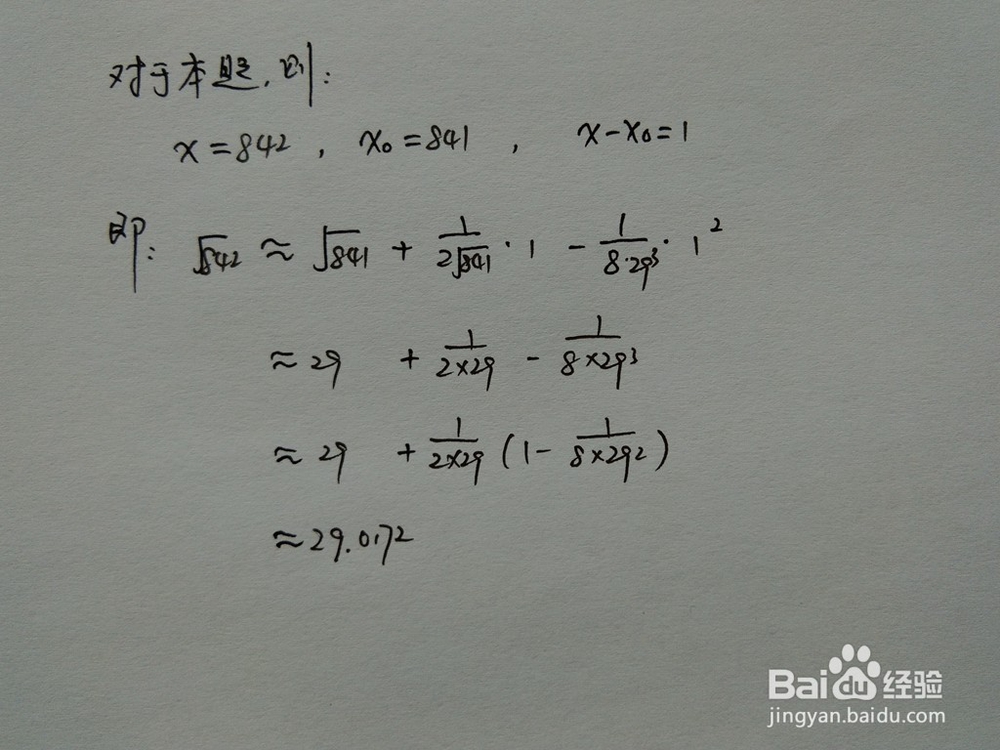 对于本题,则:
x=842, x₀=841, x-x₀=1
即: √842 ≈ √841 + 1/(2√841)·1 - 1/(8·29³)·1²
≈29 + 1/(2×29) - 1/(8×29³)
≈29 + 1/(2×29) (1- 1/(8×29²))
≈29.0172
Baidu经验
jingyan.baidu.com